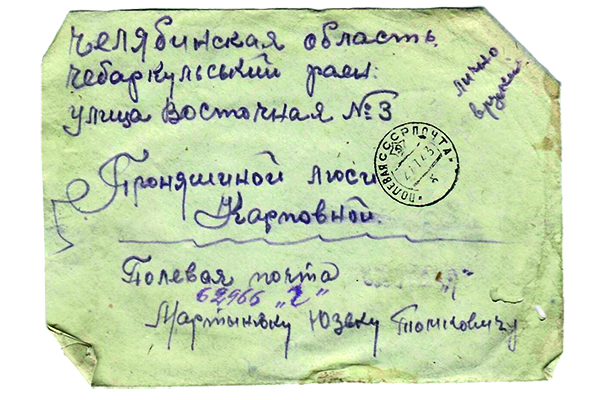 Челябинская область
Чебаркульський раен.
улица Восточная №3
лично
вручить
ПОЛЕВАЯ СССР ПОЧТА
Проняшиной люси
Карповной.
Полевая почта
62966 "г"
Мартыньку Юзеку Томковичу